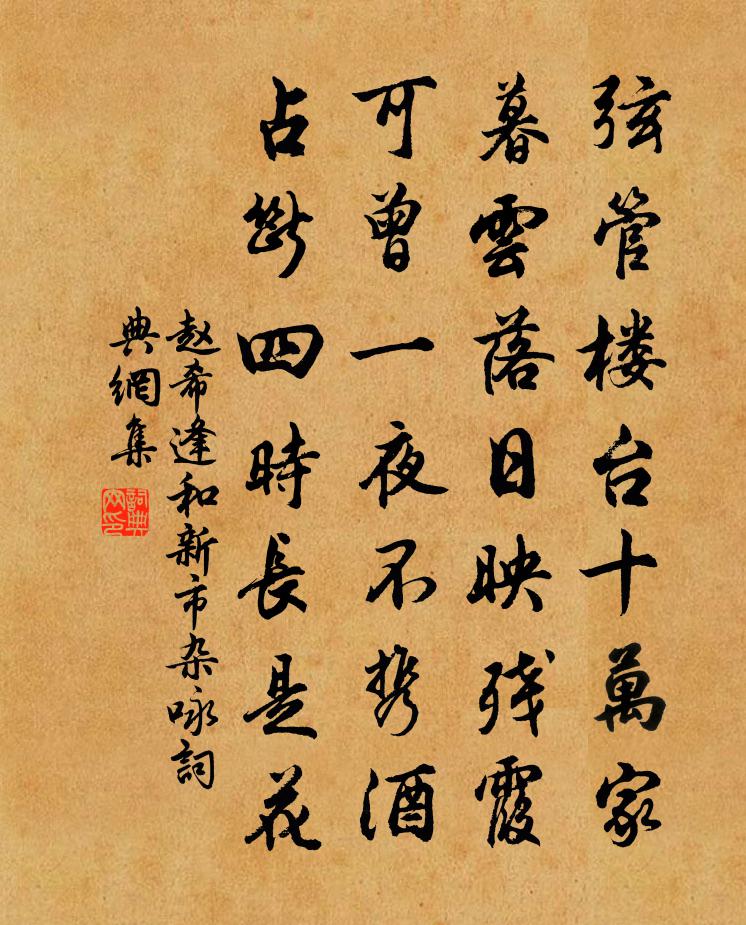 弦管楼台十萬家
暮雲落日映残霞
可曾一夜不携酒
占斷四時長是花
赵希逢和新市杂咏詞
典網集
詞典
网印